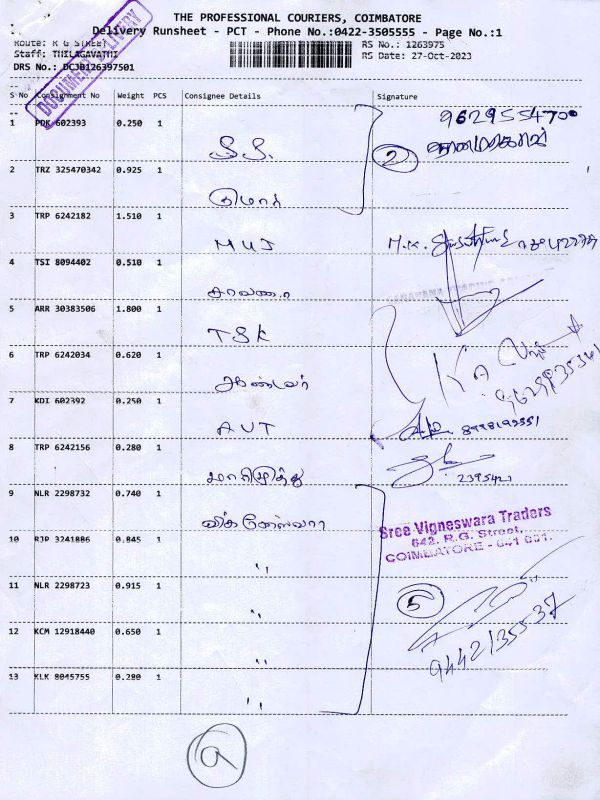 THE PROFESSIONAL COURIERS, COIMBATORE
Delivery Runsheet - PCT - Phone No.:0422-3505555 - Page No.:1
Route: R G STREET RS No.: 1263975
Staff: THILAGAVATHI RS Date: 27-Oct-2023
DRS No.: DCJB126397501
DOCUMENT DELIVERY
S No Consignment No Weight PCS Consignee Details Signature
1 PDK 602393 0.250 1
9629554700
S.S.
2 TRZ 325470342 0.925 1
2
குமார்
3 TRP 6242182 1.510 1
MUJ
4 TSI 8094402 0.510 1
சரவணா
5 ARR 30383506 1.800 1
TSK
6 TRP 6242034 0.620 1
7 KDI 602392 0.250 1
AVT
8 TRP 6242156 0.280 1
மாரிமுத்து 2395421
9 NLR 2298732 0.740 1
Sree Vigneswara Traders
642, R.G. Street,
COIMBATORE - 641 001.
10 RJP 3241886 0.845 1
"
11 NLR 2298723 0.915 1
5
"
12 KCM 12918440 0.650 1
9442135537
"
13 KLK 8045755 0.280 1
"